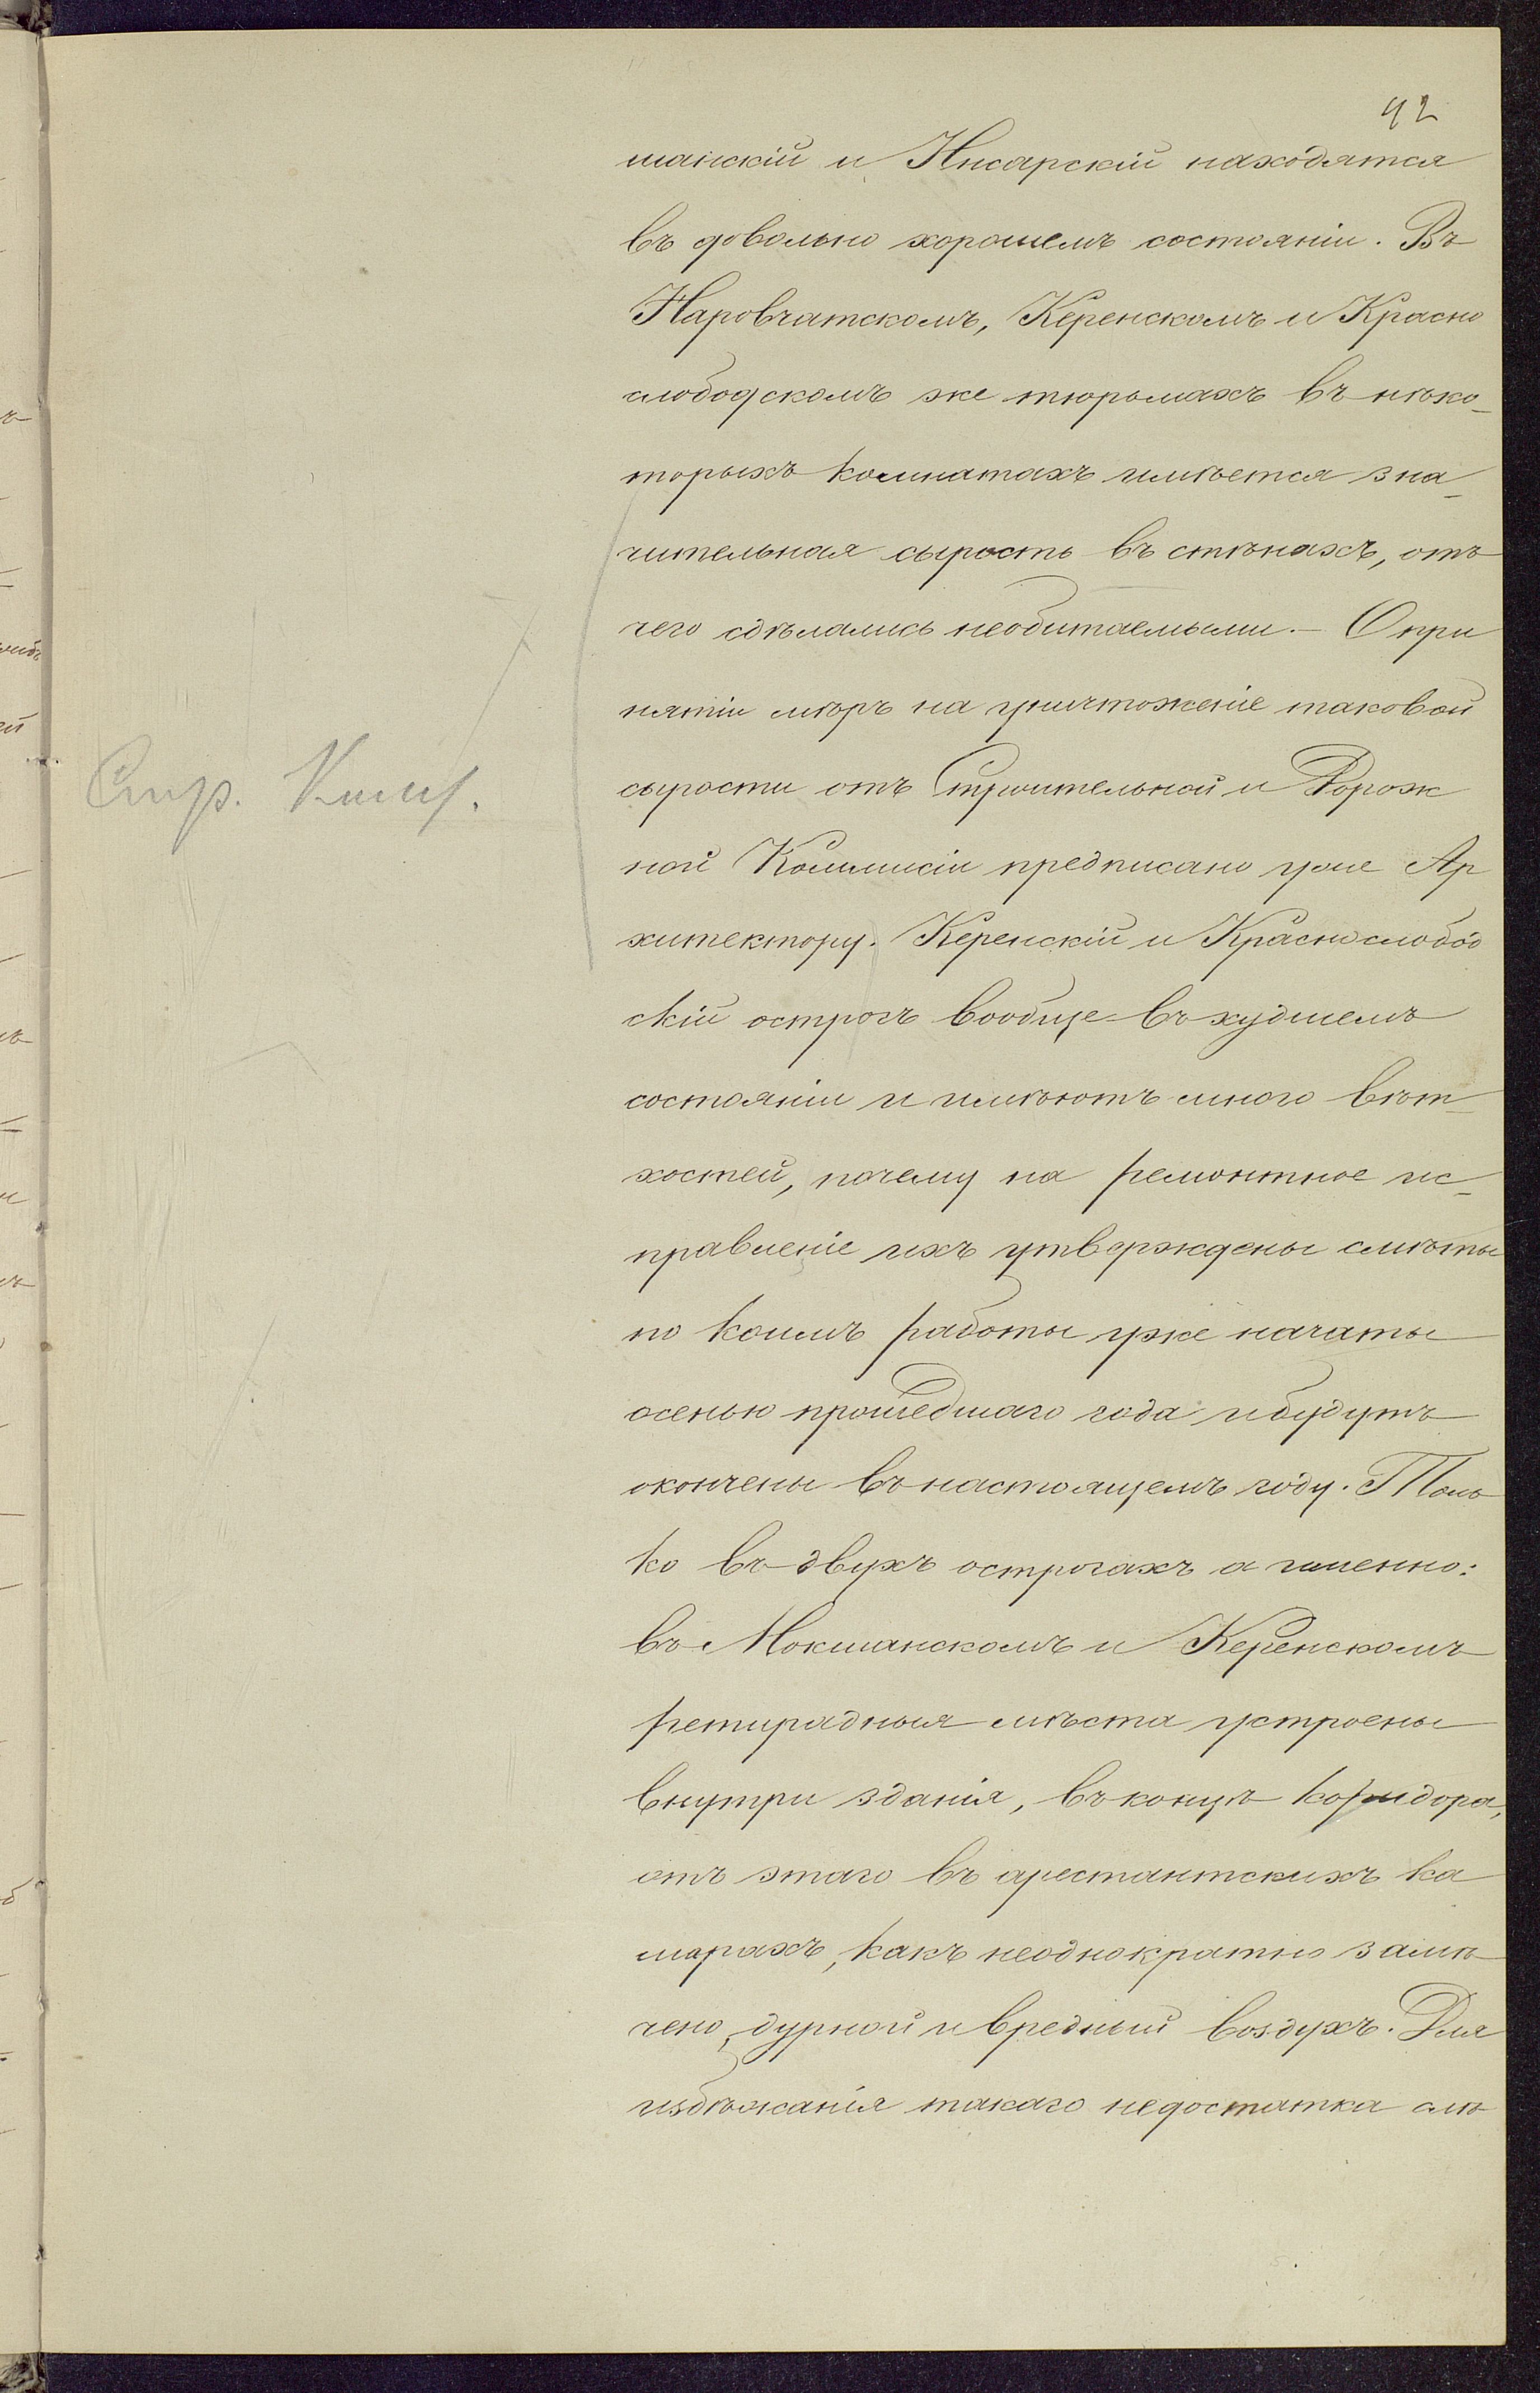 42
шанскій и Инсарскій находятся
въ довольно хорошемъ состояніи. Въ
Наровчатскомъ, Керенскомъ и Красно
слободскомъ же тюрьмахъ въ нѣко-
торыхъ комнатахъ имѣется зна-
чительная сырость въ стѣнахъ, отъ
чего сдѣлались необитаемыми. — О при
нятіи мѣръ на уничтоженіе таковой
сырости отъ Строительной и Дорож
Стр. Ком.
ной Коммисіи предписано уже Ар
хитектору. Керенскій и Краснослобод
скій острогъ вообще въ худшемъ
состояніи и имѣютъ много вѣт-
хостей, почему на ремонтное ис-
правленіе ихъ утверждены смѣты
по коимъ работы уже начаты
осенью прошедшаго года и будутъ
окончены въ настоящемъ году. Толь
ко въ двухъ острогахъ а именно:
въ Мокшанскомъ и Керенскомъ
ретирадныя мѣста устроены
внутри зданія, въ концѣ коридора,
отъ этаго въ арестантскихъ ка
марахъ, какъ неоднократно замѣ
чено, дурной и вредный воздухъ. Для
избѣжанія такаго недостатка слѣ